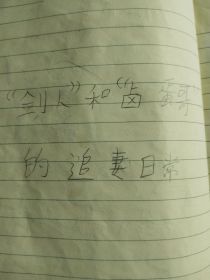 “剑人”和“卤蛋哥”
的追妻日常